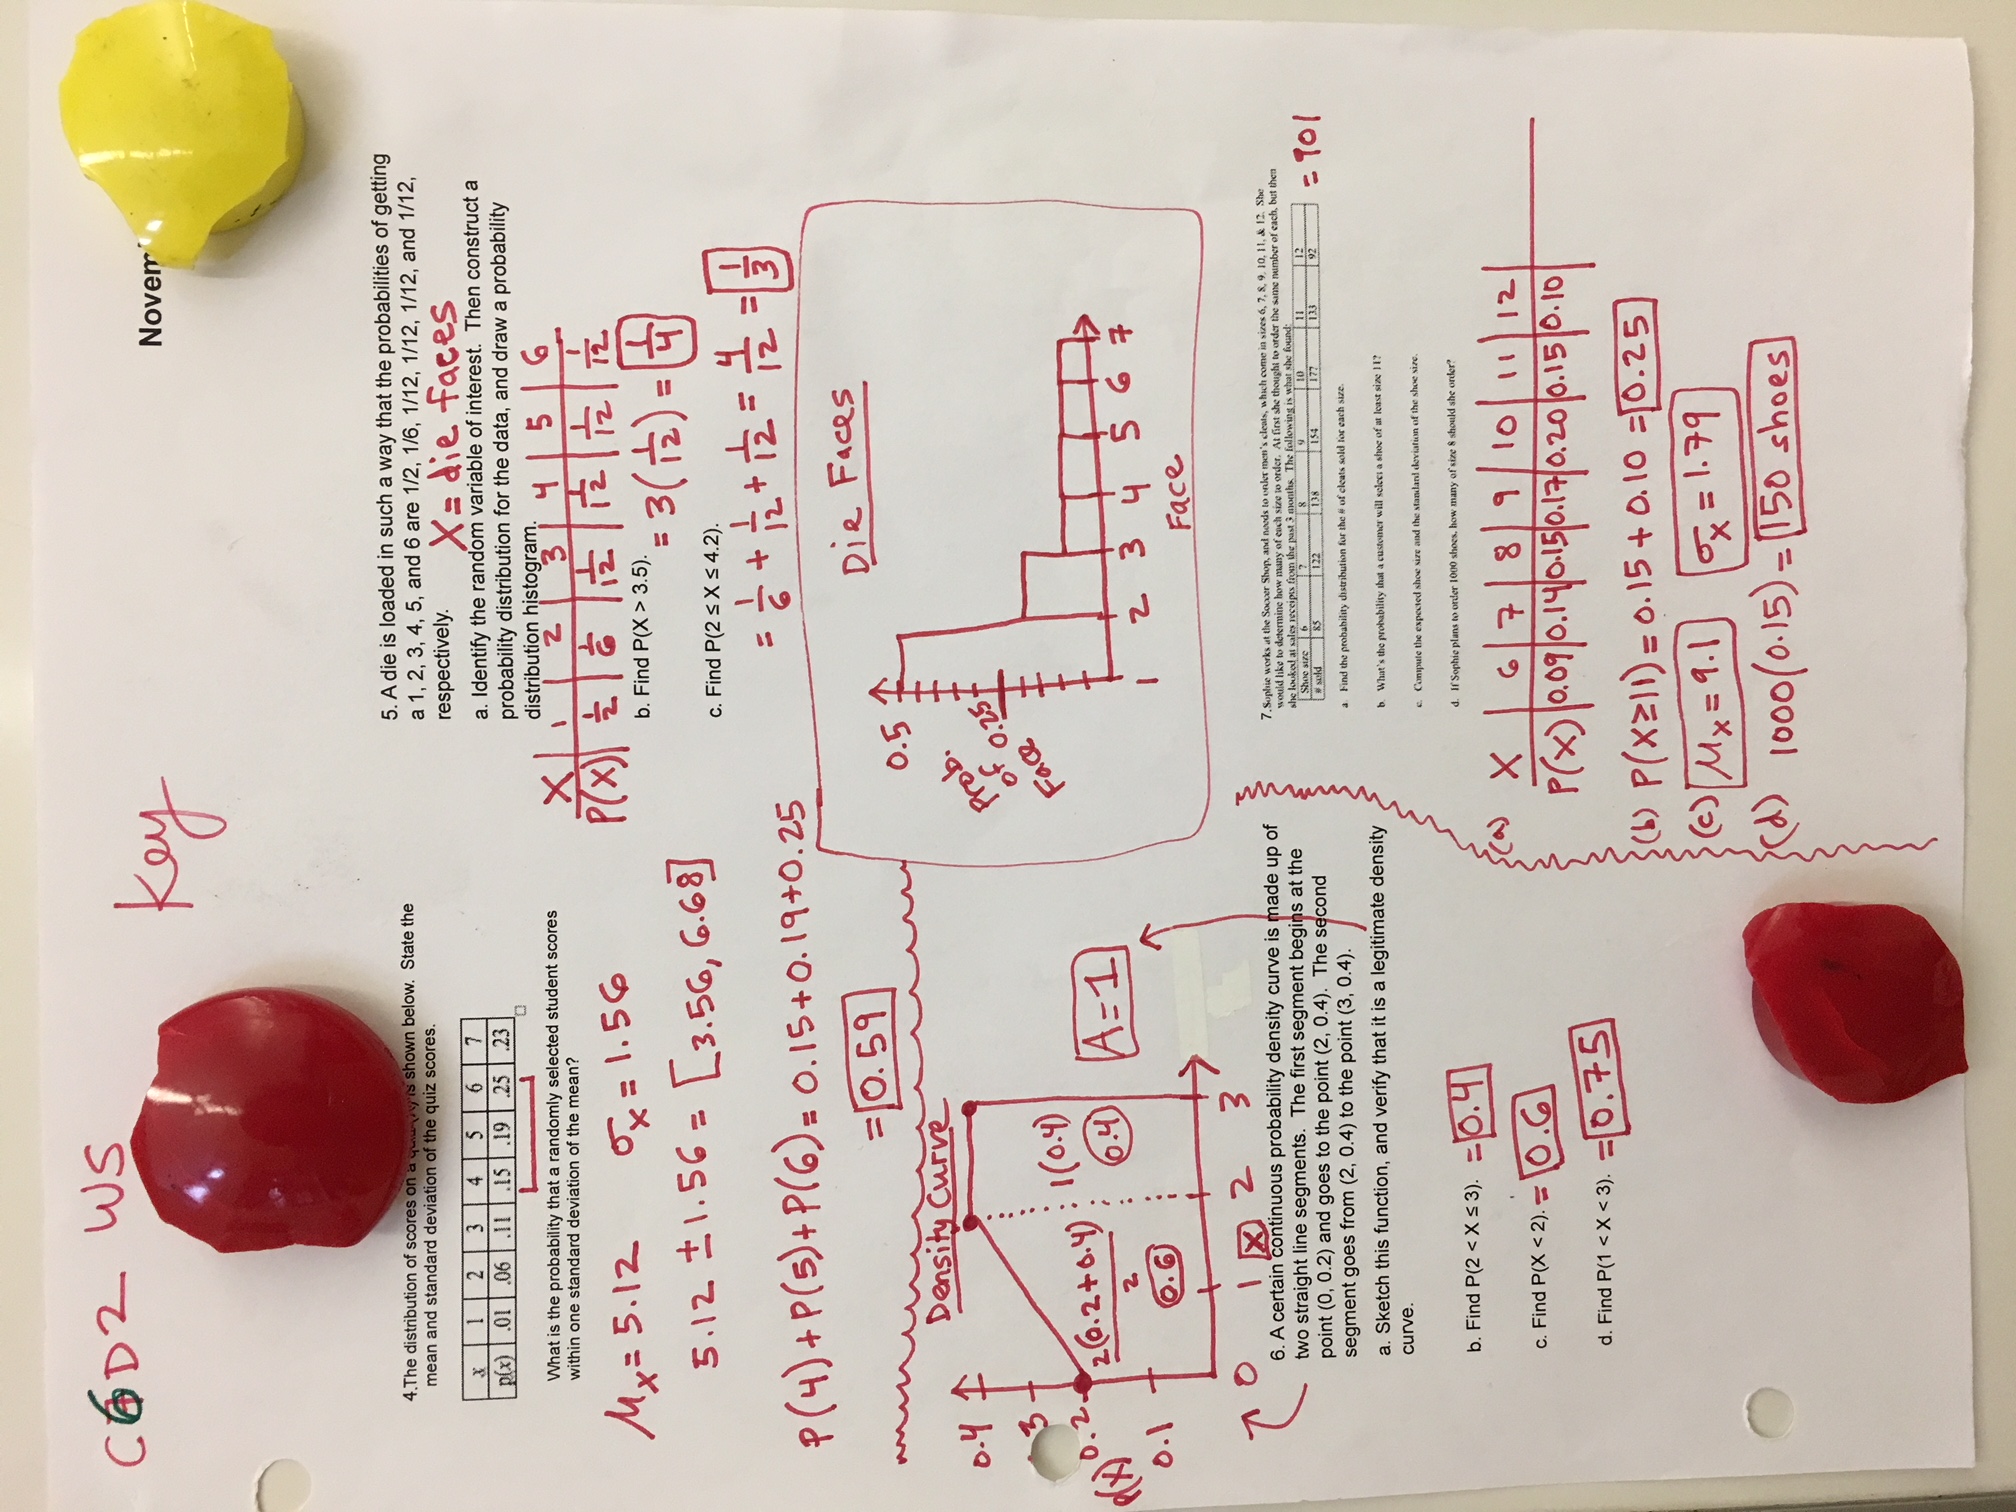 C6D2 WS
Key
Novem
4.The distribution of scores on a shown below. State the
mean and standard deviation of the quiz scores.
x 1 2 3 4 5 6 7
p(x) .01 .06 .11 .15 .19 .25 .23
What is the probability that a randomly selected student scores
within one standard deviation of the mean?
μx = 5.12 σx = 1.56
5.12 ± 1.56 = [3.56, 6.68]
P(4)+P(5)+P(6) = 0.15+0.19+0.25
= 0.59
5. A die is loaded in such a way that the probabilities of getting
a 1, 2, 3, 4, 5, and 6 are 1/2, 1/6, 1/12, 1/12, 1/12, and 1/12,
respectively.
X = die faces
a. Identify the random variable of interest. Then construct a
probability distribution for the data, and draw a probability
distribution histogram.
X 1 2 3 4 5 6
P(X) 1/2 1/6 1/12 1/12 1/12 1/12
b. Find P(X > 3.5).
= 3(1/12) = 1/4
c. Find P(2 ≤ X ≤ 4.2).
= 1/6 + 1/12 + 1/12 = 4/12 = 1/3
Die Faces
0.5
0.25
Prob.
of
Face
1 2 3 4 5 6 7
Face
Density Curve
0.4
.3
0.2
0.1
2(0.2+0.4)
2
0.6
1(0.4)
0.4
A=1
0 1 X 2 3
6. A certain continuous probability density curve is made up of
two straight line segments. The first segment begins at the
point (0, 0.2) and goes to the point (2, 0.4). The second
segment goes from (2, 0.4) to the point (3, 0.4).
a. Sketch this function, and verify that it is a legitimate density
curve.
b. Find P(2 < X ≤ 3). = 0.4
c. Find P(X < 2). = 0.6
d. Find P(1 < X < 3). = 0.75
7. Sophie works at the Soccer Shop, and needs to order men's cleats, which come in sizes 6, 7, 8, 9, 10, 11, & 12. She
would like to determine how many of each size to order. At first she thought to order the same number of each, but then
she looked at sales receipts from the past 3 months. The following is what she found:
Shoe size 6 7 8 9 10 11 12
# sold 85 122 138 154 177 133 92
= 901
a. Find the probability distribution for the # of cleats sold for each size.
b. What's the probability that a customer will select a shoe of at least size 11?
c. Compute the expected shoe size and the standard deviation of the shoe size.
d. If Sophie plans to order 1000 shoes, how many of size 8 should she order?
(a) X 6 7 8 9 10 11 12
P(X) 0.09 0.14 0.15 0.17 0.20 0.15 0.10
(b) P(X≥11) = 0.15 + 0.10 = 0.25
(c) μx = 9.1 σx = 1.79
(d) 1000(0.15) = 150 shoes